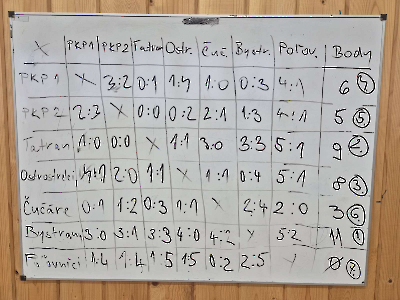 X PKP1 PKP2 Tatran Ostr. Čuč. Bystr. Poľov. Body
PKP1 X 3:2 0:1 1:4 1:0 0:3 4:1 6 4
PKP2 2:3 X 0:0 0:2 2:1 1:3 4:1 5 5
Tatran 1:0 0:0 X 1:1 3:0 3:3 5:1 9 2
Ostrostrelci 4:1 2:0 1:1 X 1:1 0:4 5:1 8 3
Čučáre 0:1 1:2 0:3 1:1 X 2:4 2:0 3 6
Bystran 3:0 3:1 3:3 4:0 4:2 X 5:2 11 1
1:4 1:4 1:5 1:5 0:2 2:5 X 0 7